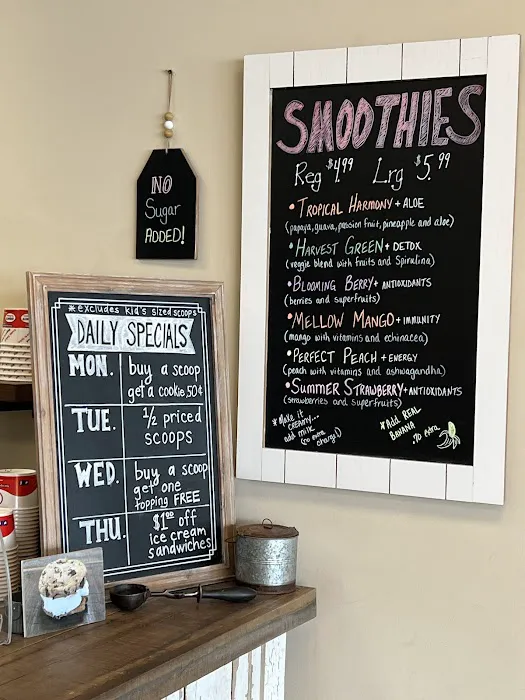 NO
Sugar
ADDED!
SMOOTHIES
Reg $4.99 Lrg $5.99
• TROPICAL HARMONY + ALOE
(papaya, guava, passion fruit, pineapple and aloe)
• HARVEST GREEN + DETOX
(veggie blend with fruits and Spirulina)
• BLOOMING BERRY + ANTIOXIDANTS
(berries and superfruits)
• MELLOW MANGO + IMMUNITY
(mango with vitamins and echinacea)
• PERFECT PEACH + ENERGY
(peach with vitamins and ashwagandha)
• SUMMER STRAWBERRY + ANTIOXIDANTS
(strawberries and superfruits)
* Make it
creamy...
add milk
(no extra charge!)
* Add REAL
BANANA
.70 extra
* excludes kid's sized scoops
DAILY SPECIALS
MON. buy a scoop
get a cookie 50¢
TUE. 1/2 priced
scoops
WED. buy a scoop
get one
topping FREE
THU. $1.00 off
ice cream
sandwiches